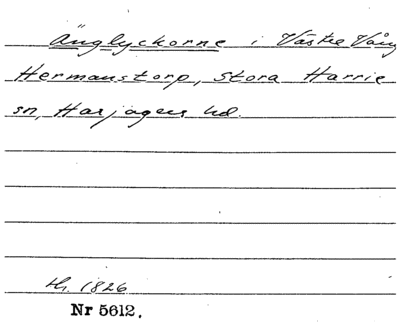 Änglyckorne i Västra Vång
Hermanstorp, Stora Harrie
sn, Harjagers hd.
th. 1826
Nr 5612.